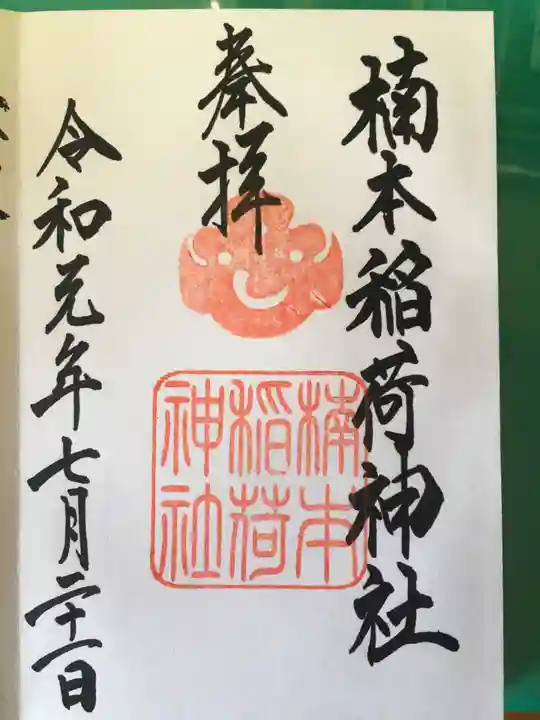 楠本稲荷神社
奉拝
楠本
稲荷
神社
令和元年七月二十一日